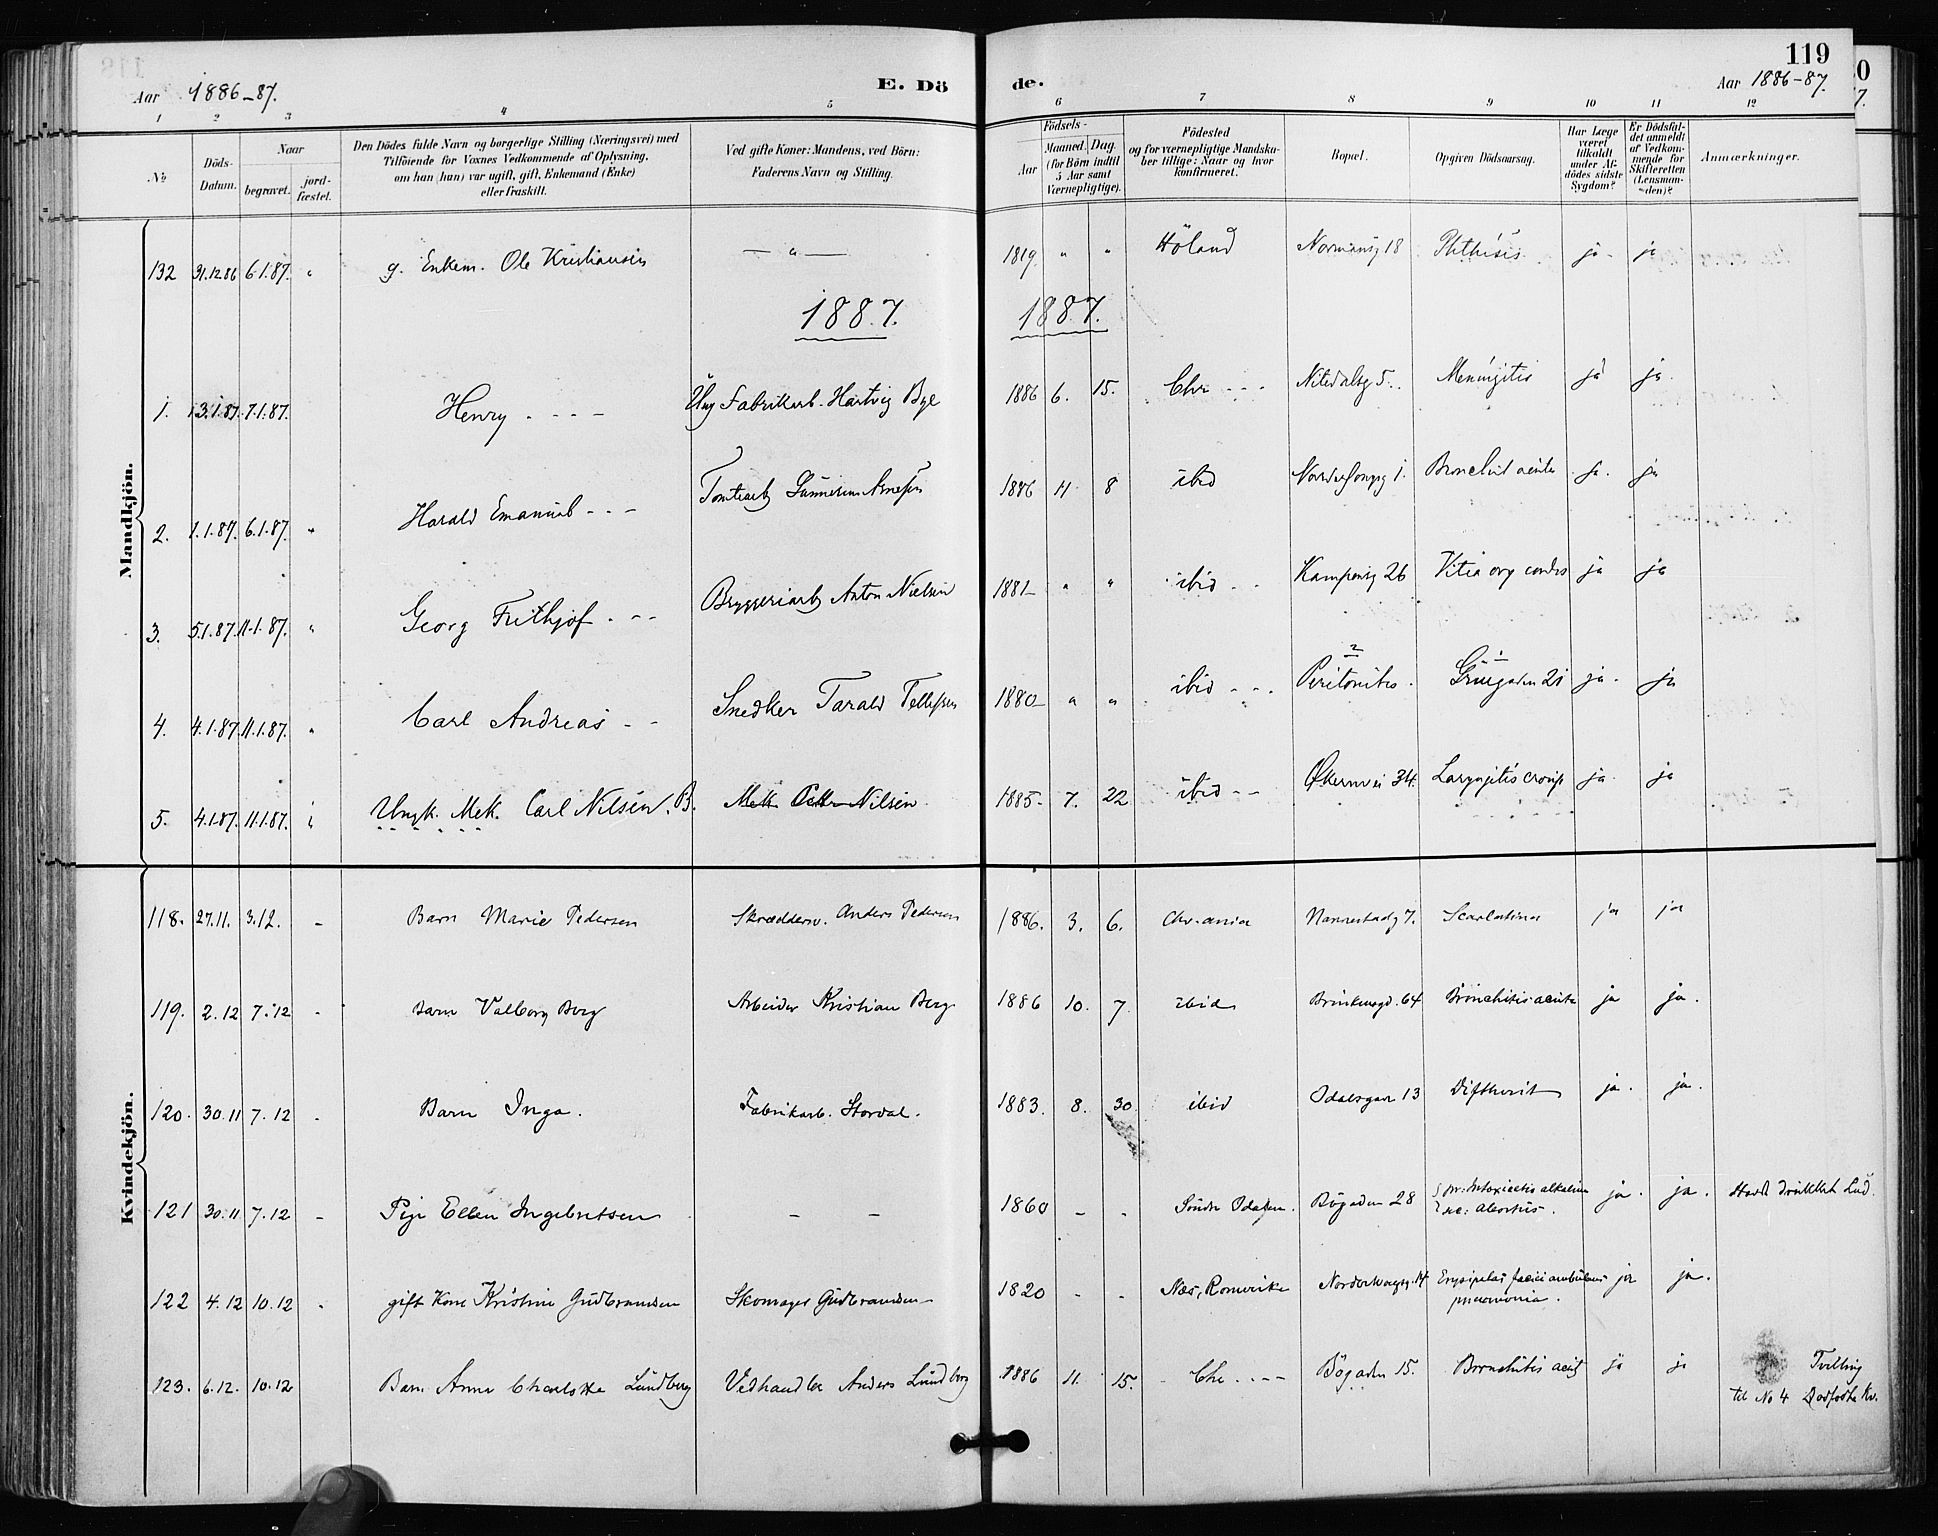 119
Aar 1886-87. E. Dö de. Aar 1886-87.
1 2 3 4 5 6 7 8 9 10 11 12
No
Döds-Datum.
Naar
begravet.
jord-fæstet.
Den Dödes fulde Navn og borgerlige Stilling (Næringsvei) med
Tilföiende for Voxnes Vedkommende af Oplysning,
om han (hun) var ugift, gift, Enkemand (Enke)
eller fraskilt.
Ved gifte Koner: Mandens, ved Börn:
Faderens Navn og Stilling.
Födsels-
Aar
Maaned. Dag.
(for Börn indtil
5 Aar samt
Værnepligtige).
Födested
og for værnepligtige Mandska-
ber tillige: Naar og hvor
konfirmeret.
Bopæl.
Opgiven Dödsaarsag.
Har Læge
været
tilkaldt
under Af-
dödes sidste
Sygdom?
Er Dödsfal-
det anmeldt
af Vedkom-
mende for
Skifteretten
(Lensman-
den)?
Anmærkninger.
Mandkjön.
132 31.12.86 6.1.87. " g. Enkem. Ole Kristiansen — " — 1819 " " Höland Normansg 18 Phthisis. ja - ja
1887. 1887.
1. 3.1.87. 7.1.87. Henry - - - - Ung Fabrikarb. Hartvig Bye 1886 6. 15. Chr - - - Nitedalsg 5. Meningitis ja ja.
2. 1.1.87. 6.1.87. " Harald Emanuel - - - Tomtearb 1886 11 8 ibid 1. Bronchit acuta ja. ja
3. 5.1.87. 11.1.87. " Georg Frithjof - - - Bryggeriarb Anton Nielsen 1881 " " ibid - - Kampensg 26 Vitia org cordis ja ja
4. 4.1.87. 11.1.87. " Carl Andreas - - Snedker Tarald Tellefsen 1880 " " ibid - - - 2 Peritonitis. 1 21 ja. ja
5. 4.1.87. 11.1.87. " Ungk. Mek. Carl Nilsen. B. Mek Nilsen 1885. 7. 22 ibid - - Økernvei 34. Laryngitis croup ja. ja
Kvindekjön.
118. 27.11. 3.12. - Barn Marie Pedersen Skrædderm. Anders Pedersen 1886. 3. 6. Chr.ania Nannestadg 7. Scarlatina ja ja
119. 2.12 7.12 - Barn Valborg Berg Arbeider Kristian Berg 1886 10. 7 ibid 64 Bronchitis acuta ja ja.
120. 30.11 7.12 - Barn Inga. Fabrikarb. Stordal. 1883. 8. 30 ibid Odalsgaden 13 Diftherit ja. ja.
121 30.11 7.12 - Pige Ellen Ingebretsen - - 1860 - - Söndre Odalen. Bögaden 28 pr: Intoxicatio alkalina ja. ja. Havde drukket Lud.
sec: abortus.
122 4.12 10.12 - gift Kone Kristine Gudbrandsen Skomager Gudbrandsen 1820 - - Næs, Romerike 14 Erysipelas faciei ambulans ja ja.
pneumonia.
123. 6.12. 10.12 Barn Anna Charlotte Lundberg Vedhandler Anders Lundberg 1886 11. 15. Chr. - - - Bögaden 15. Bronchitis acut ja ja Tvilling
til No 4 Dødfødte Kv.